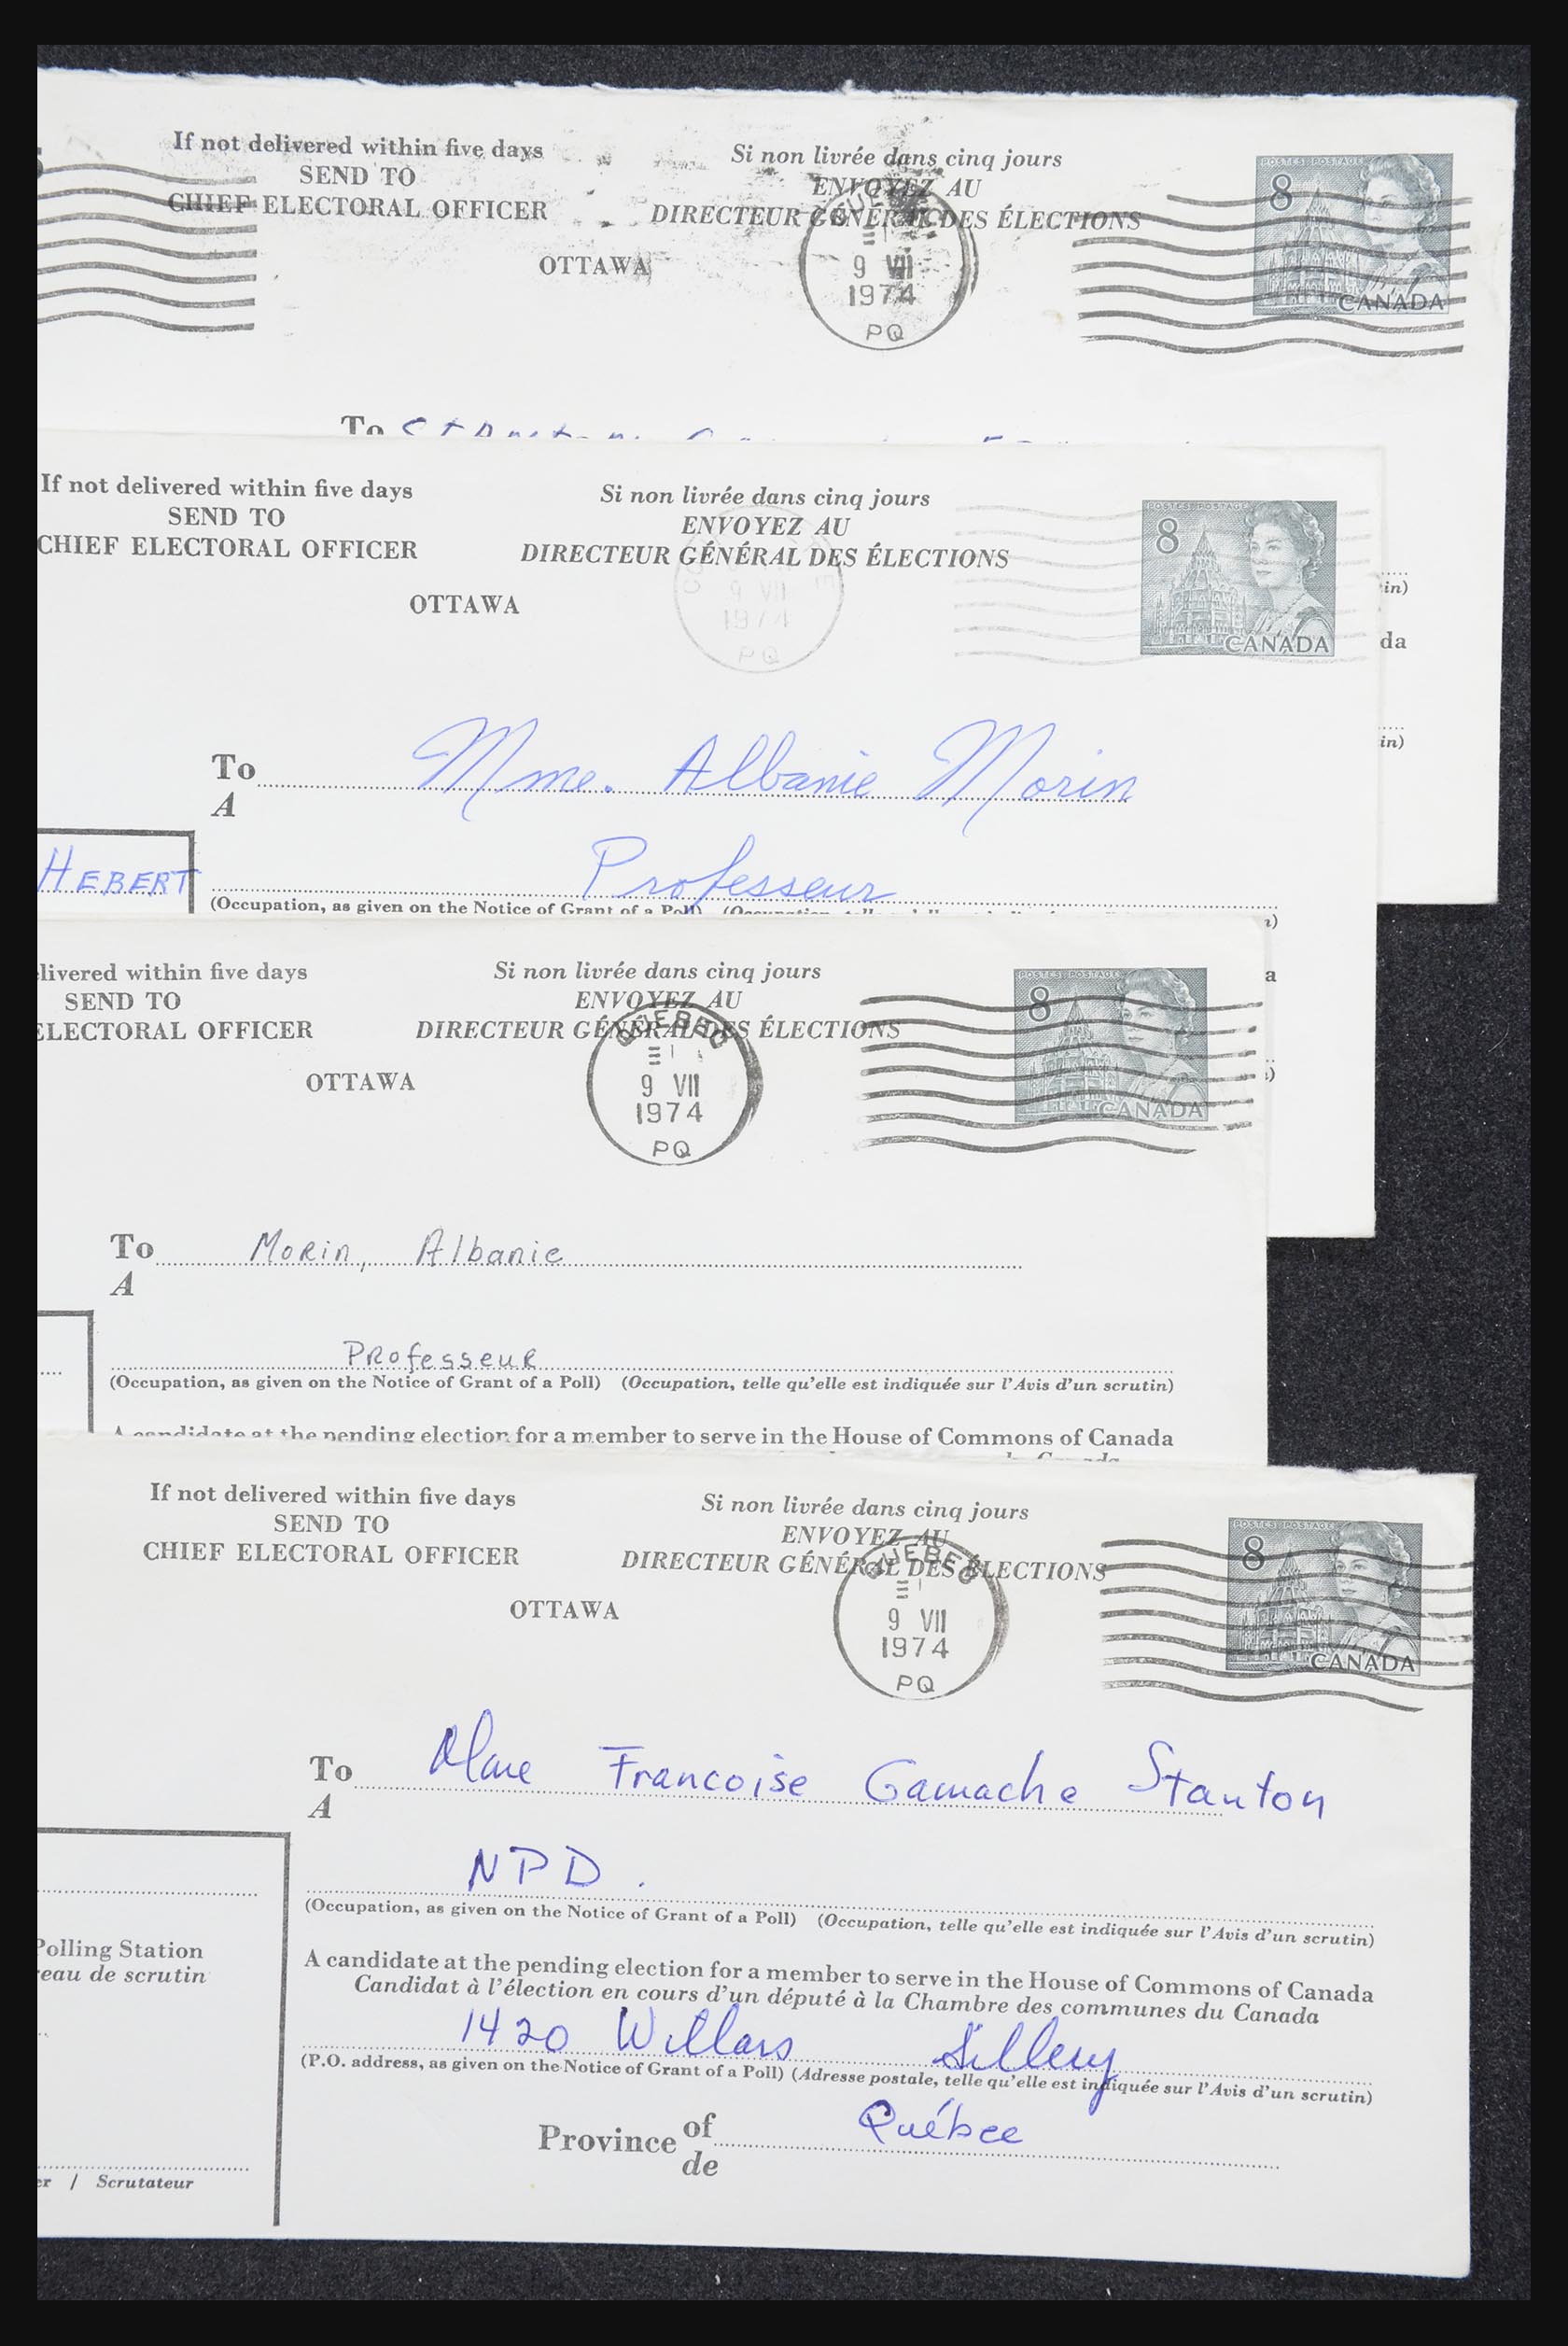 If not delivered within five days
SEND TO
CHIEF ELECTORAL OFFICER
Si non livrée dans cinq jours
ENVOYEZ AU
DIRECTEUR GÉNÉRAL DES ÉLECTIONS
OTTAWA
9 VII
1974
PQ
POSTES POSTAGE
8
CANADA
To
in)
da
in)
If not delivered within five days
SEND TO
CHIEF ELECTORAL OFFICER
Si non livrée dans cinq jours
ENVOYEZ AU
DIRECTEUR GÉNÉRAL DES ÉLECTIONS
OTTAWA
9 VII
1974
PQ
POSTES POSTAGE
8
CANADA
To Mme. Albanie Morin
A
HEBERT
Professeur
(Occupation, as given on the Notice of Grant of a Poll)
livered within five days
SEND TO
ELECTORAL OFFICER
Si non livrée dans cinq jours
ENVOYEZ AU
DIRECTEUR GÉNÉRAL DES ÉLECTIONS
OTTAWA
QUEBEC
9 VII
1974
PQ
POSTES POSTAGE
8
CANADA
To Morin, Albanie
A
Professeur
(Occupation, as given on the Notice of Grant of a Poll) (Occupation, telle qu'elle est indiquée sur l'Avis d'un scrutin)
A candidate at the pending election for a member to serve in the House of Commons of Canada
If not delivered within five days
SEND TO
CHIEF ELECTORAL OFFICER
Si non livrée dans cinq jours
ENVOYEZ AU
DIRECTEUR GÉNÉRAL DES ÉLECTIONS
OTTAWA
QUEBEC
9 VII
1974
PQ
POSTES POSTAGE
8
CANADA
To Mme Francoise Gamache Stanton
A
NPD.
(Occupation, as given on the Notice of Grant of a Poll) (Occupation, telle qu'elle est indiquée sur l'Avis d'un scrutin)
Polling Station
eau de scrutin
A candidate at the pending election for a member to serve in the House of Commons of Canada
Candidat à l'élection en cours d'un député à la Chambre des communes du Canada
1420 Willars Sillery
(P.O. address, as given on the Notice of Grant of a Poll) (Adresse postale, telle qu'elle est indiquée sur l'Avis d'un scrutin)
Province of Québec
de
er / Scrutateur